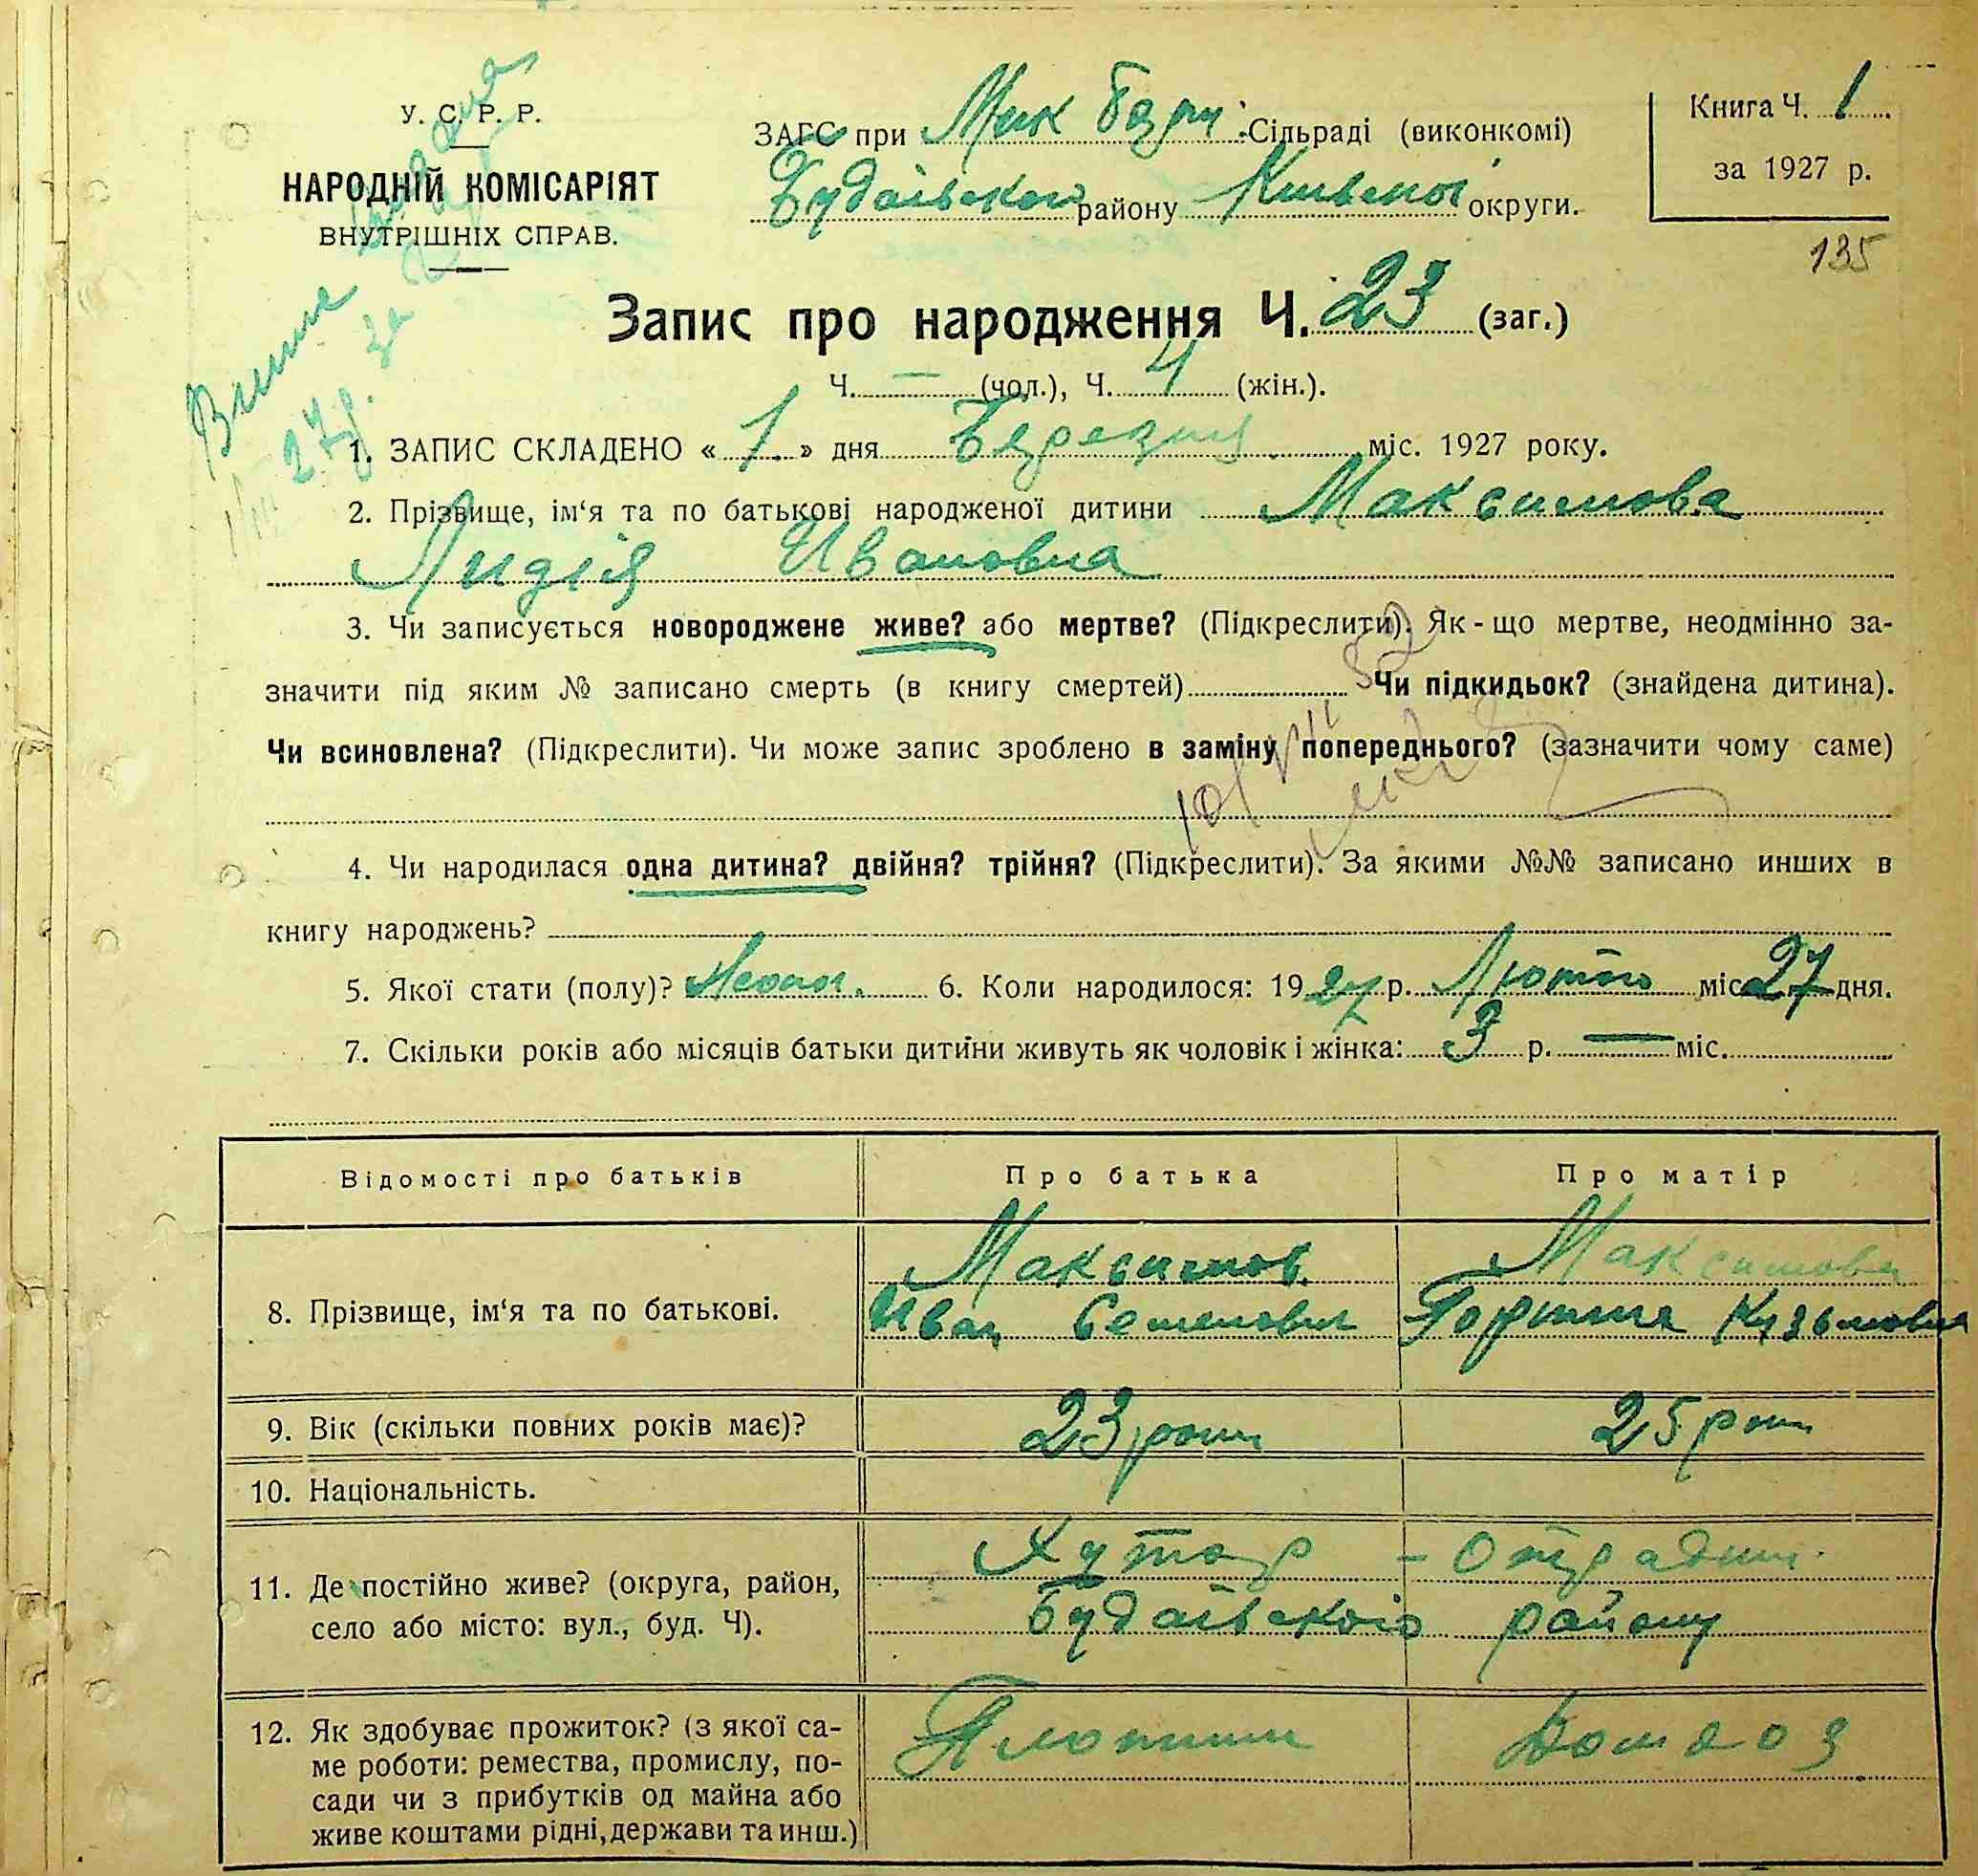 У. С. Р. Р.
НАРОДНІЙ КОМІСАРІЯТ
ВНУТРІШНІХ СПРАВ.
ЗАГС при Мик Боры Сільраді (виконкомі)
Будаївського району Київської округи.
Книга Ч. 1
за 1927 р.
135
Запис про народження Ч. 23 (заг.)
Ч. — (чол.), Ч. 4 (жін.).
1. ЗАПИС СКЛАДЕНО « 1 » дня Березня міс. 1927 року.
2. Прізвище, ім‘я та по батькові народженої дитини Максимова
Лидія Ивановна
3. Чи записується новороджене живе? або мертве? (Підкреслити). Як-що мертве, неодмінно за-
значити під яким № записано смерть (в книгу смертей) Чи підкидьок? (знайдена дитина).
Чи всиновлена? (Підкреслити). Чи може запис зроблено в заміну попереднього? (зазначити чому саме)
4. Чи народилася одна дитина? двійня? трійня? (Підкреслити). За якими №№ записано инших в
книгу народжень?
5. Якої стати (полу)? 6. Коли народилося: 1927 р. Лютого міс. 27 дня.
7. Скільки років або місяців батьки дитини живуть як чоловік і жінка: 3 р. — міс.
Відомості про батьків Про батька Про матір
8. Прізвище, ім‘я та по батькові.
Максимов Максимова
Иван Семенович Горпина Кузьмовна
9. Вік (скільки повних років має)? 23 роки 25 роки
10. Національність.
11. Де постійно живе? (округа, район,
село або місто: вул., буд. Ч).
Хутор - Отрадний
Будаївського району
12. Як здобуває прожиток? (з якої са-
ме роботи: ремества, промислу, по-
сади чи з прибутків од майна або
живе коштами рідні, держави та инш.)
Плотник Домаоз